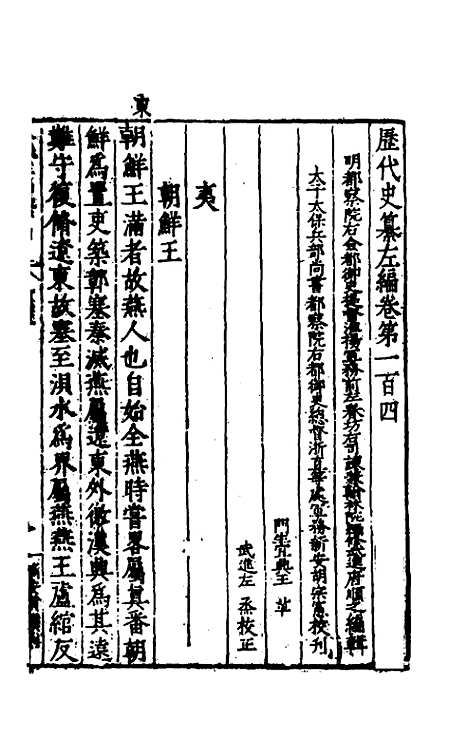 歷代史纂左編卷第一百四
明都察院右僉都御史提督淮揚軍務前左春坊右司諫兼翰林院編修武進唐順之編輯
太子太保兵部尚書都察院右都御史總督浙直等處軍務新安胡宗憲校刊
門生宜興王革
武進左烝校正
夷
朝鮮王
東
朝鮮王滿者故燕人也自始全燕時嘗畧屬真番朝
鮮爲置吏築鄣塞秦滅燕屬遼東外徼漢興爲其遠
難守復脩遼東故塞至浿水爲界屬燕燕王盧綰反